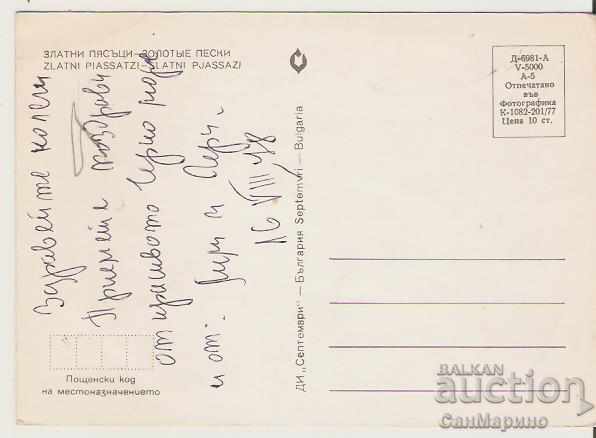 ЗЛАТНИ ПЯСЪЦИ—ЗОЛОТЫЕ ПЕСКИ
ZLATNI PIASSATZI—ZLATNI PJASSAZI
Здравейте колеги
Приемете поздрави
от красивото Черно море
и от
и
16 VIII 78
Пощенски код
на местоназначението
ДИ „Септември" — България Septemvri — Bulgaria
Д-6981-А
V-5000
А-5
Отпечатано
във
Фотографика
К-1082-201/77
Цена 10 ст.
BALKAN
auction
СанМарино